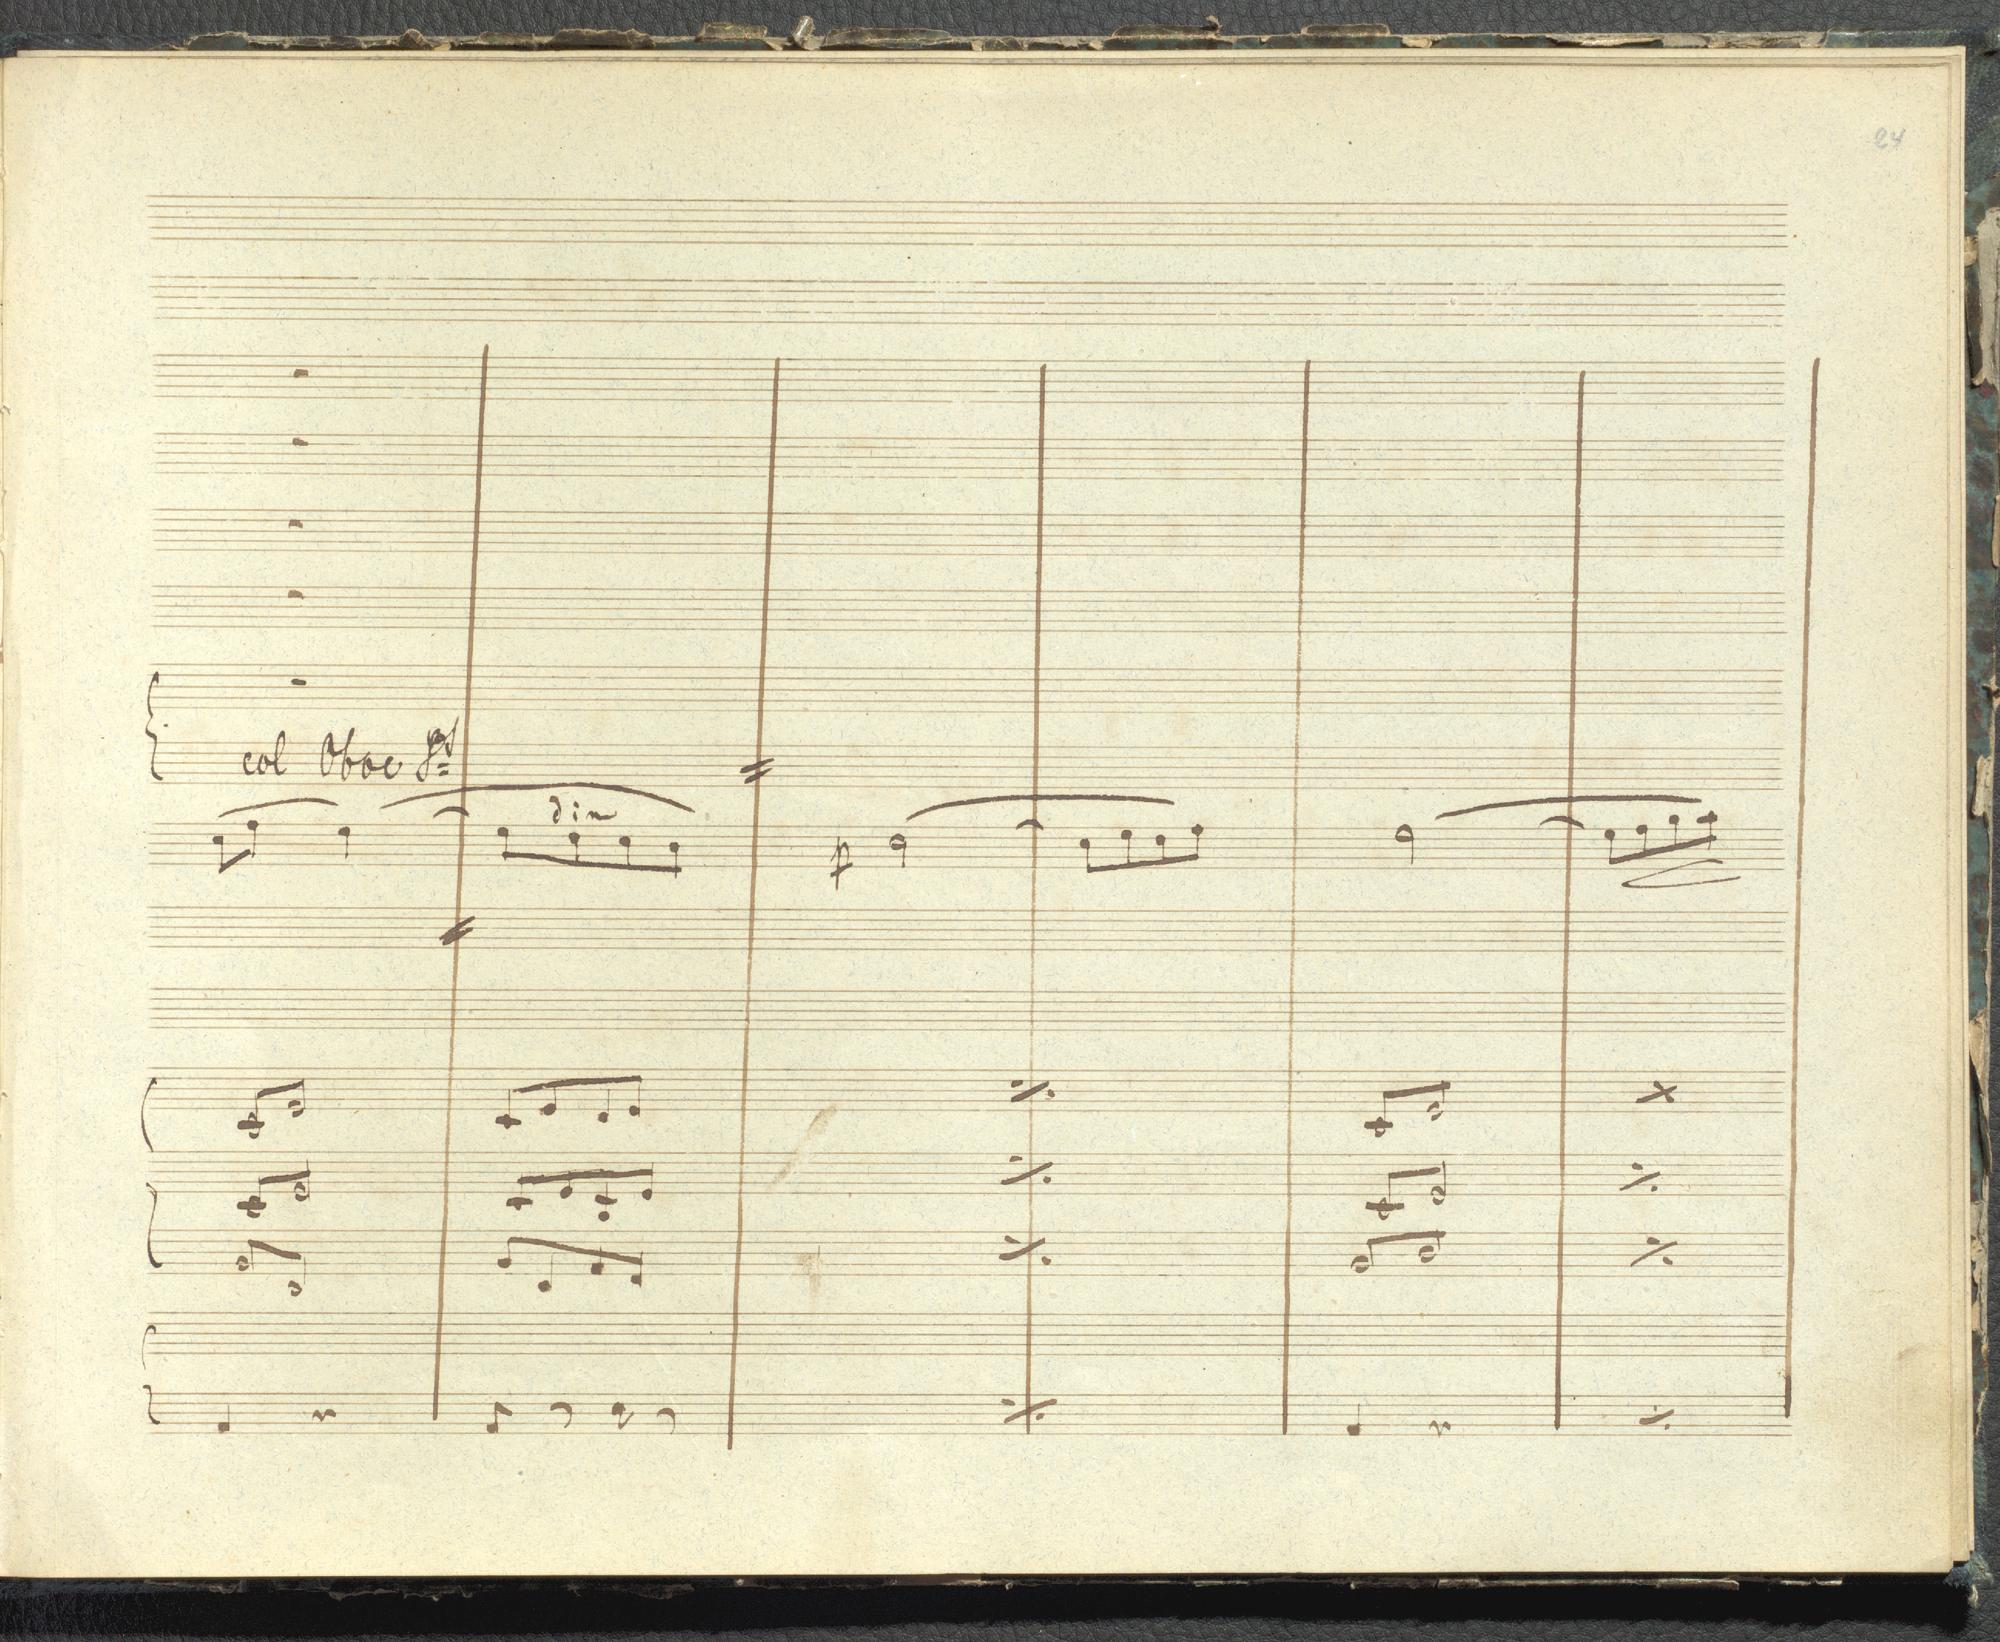 24
col Oboe
dim
p